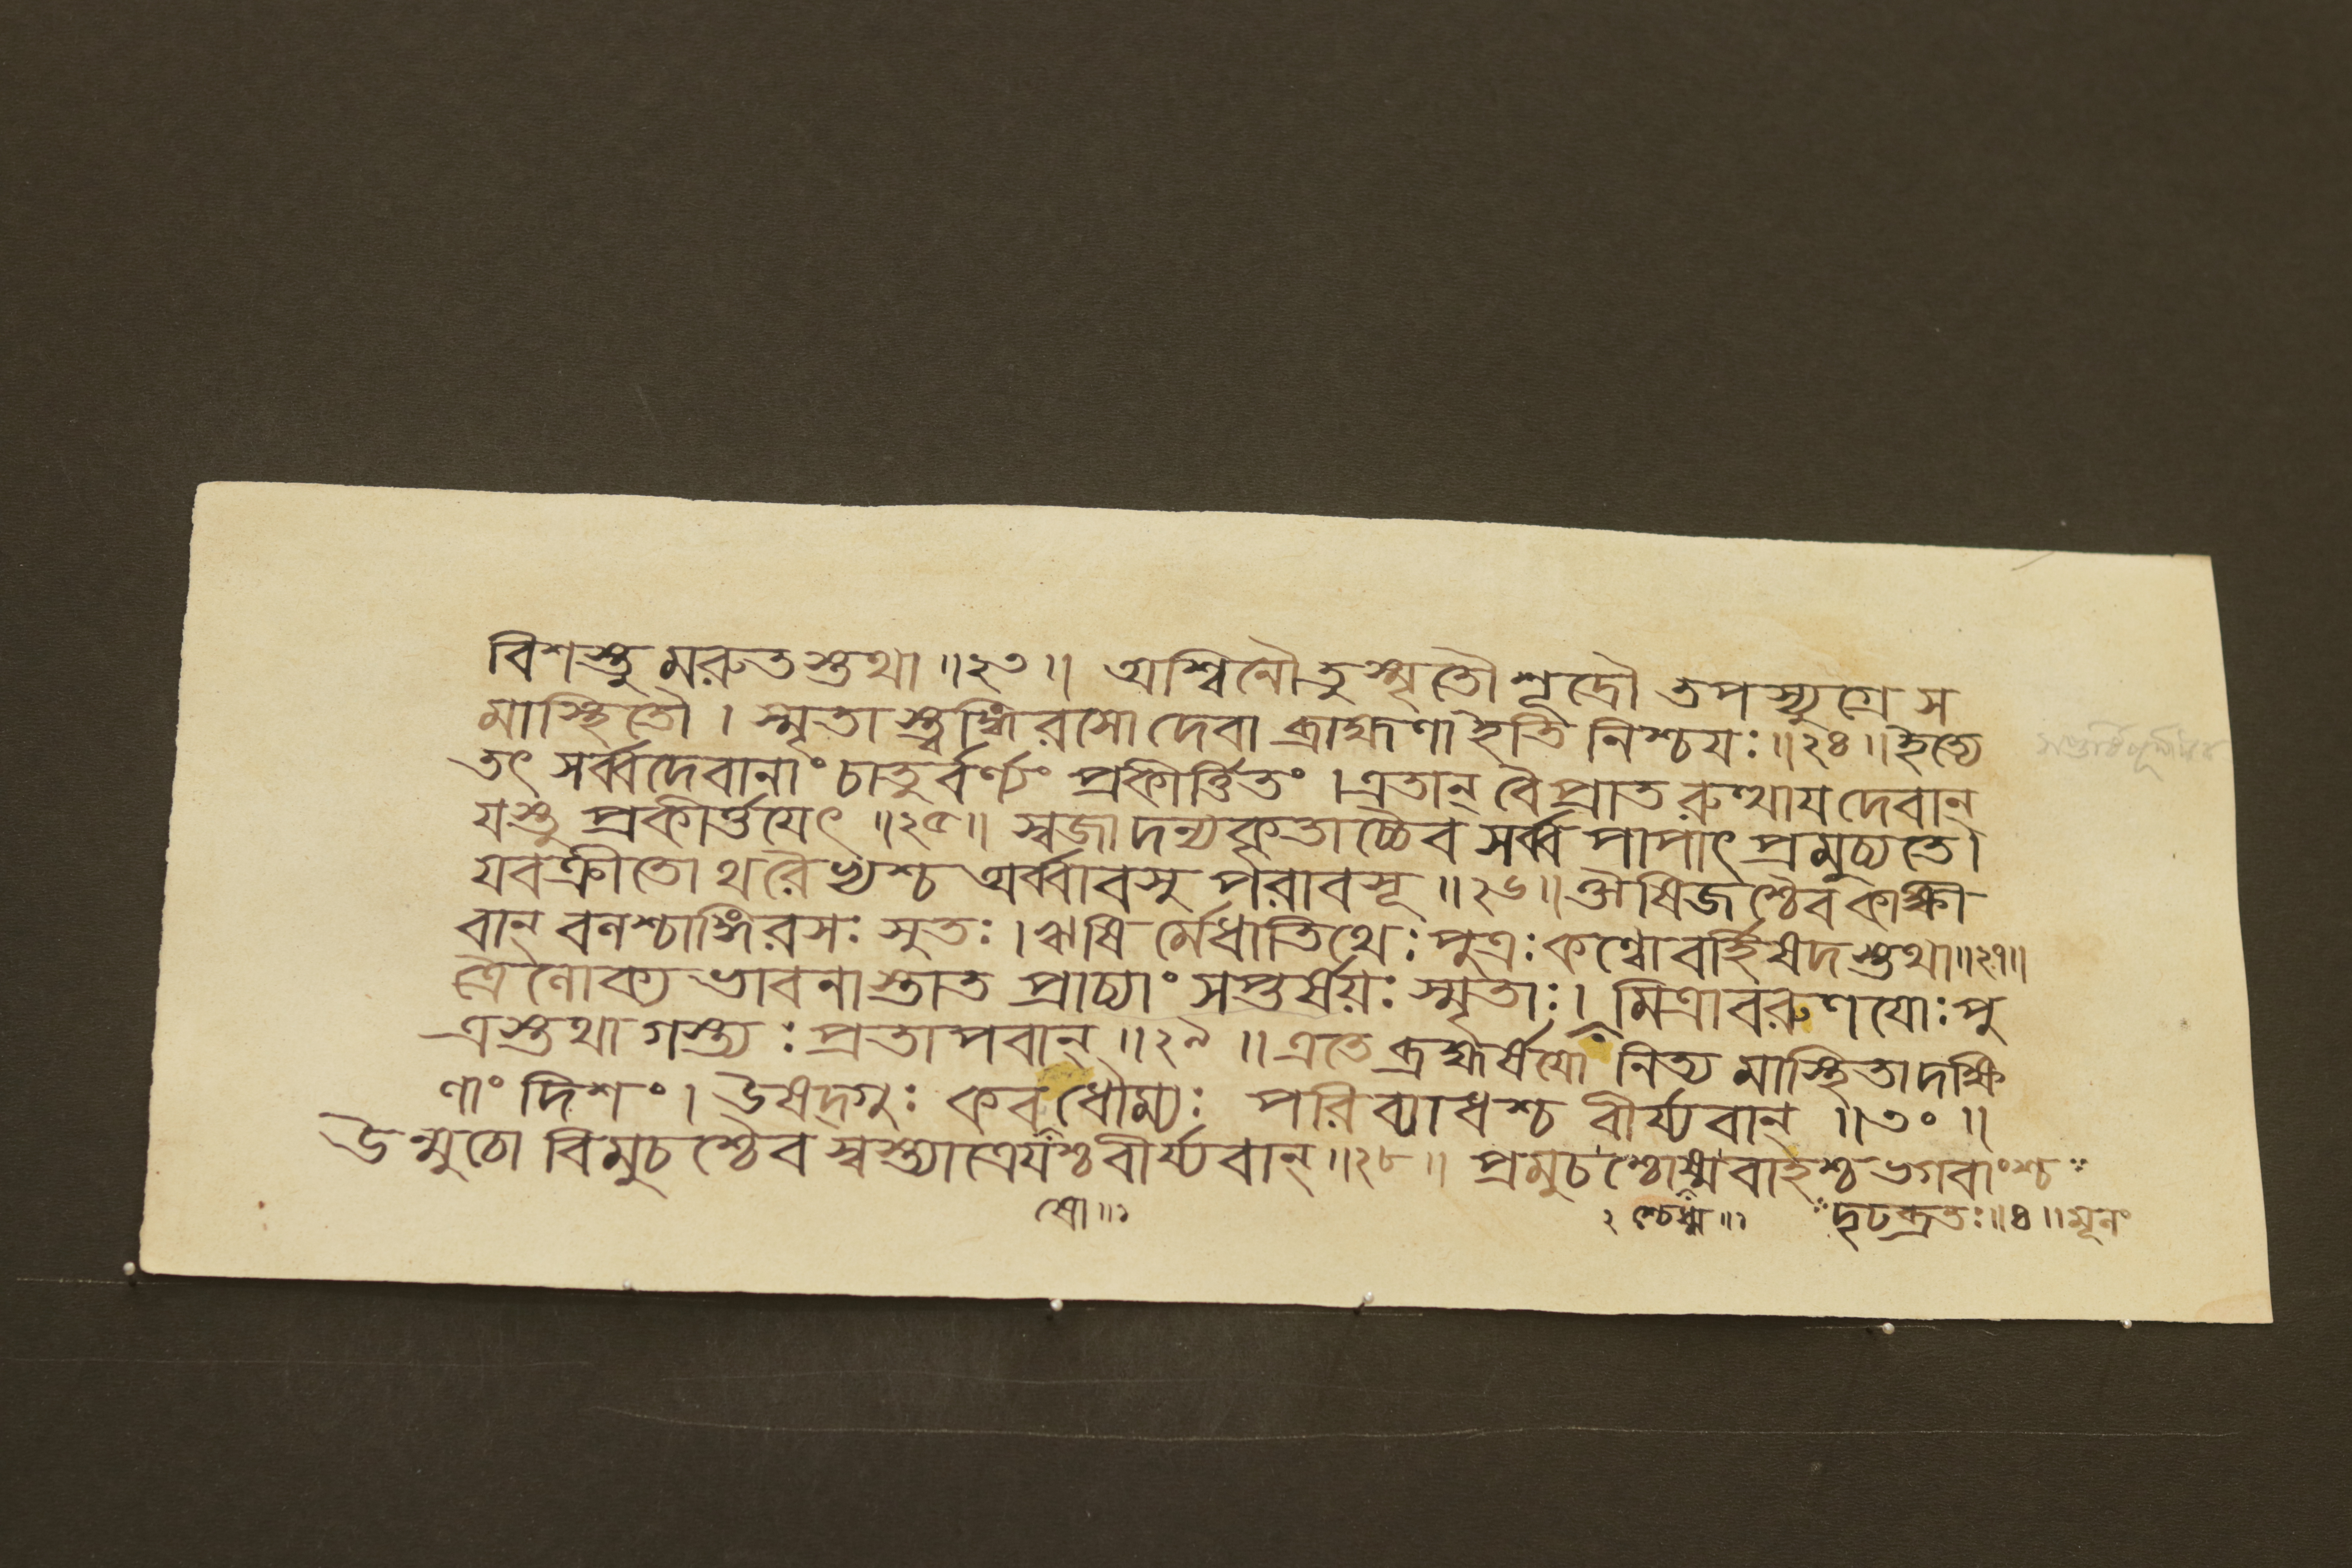 বিশস্তু মরুতস্তথা ॥২৩॥ অশ্বিনৌতুস্মৃতৌশূদ্রৌ তপস্যুগ্রে স
মাস্থিতৌ । স্মৃতাস্ত্বঙ্গিরসো দেবা ব্রাহ্মণা ইতি নিশ্চযঃ ॥২৪॥ ইত্যে
তৎ সর্ব্বদেবানাং চাতুর্বর্ণ্যং প্রকীর্ত্তিতং । এতান্ বৈ প্রাতরুত্থায দেবান্
যস্তু প্রকীর্ত্তযেৎ ॥২৫॥ স্বজাদন্যকৃতাচ্চৈব সর্ব্বপাপাৎ প্রমুচ্যতে ।
যবক্রীতোথরৈভ্যশ্চ অর্ব্বাবসু পরাবসূ ॥২৬॥ ঔষিজশ্চৈব কাক্ষী
বান্ বনশ্চাঙ্গিরসঃ সুতঃ । ঋষি র্মেধাতিথেঃ পুত্রঃ কণ্বোবর্হিষদস্তথা ॥২৭॥
ত্রৈলোক্য ভাবনাস্তাত প্রাচ্যাং সপ্তর্ষয়ঃ স্মৃতাঃ । মিত্রাবরুণযোঃ পু
ত্রস্তথাগস্ত্যঃ প্রতাপবান্ ॥২৯॥ এতে ব্রহ্মর্ষযো নিত্য মাস্থিতাদক্ষি
ণাং দিশং । উষদ্গুঃ কবধৌম্যঃ পরিব্যাধশ্চ বীর্য্যবান্ ॥৩০॥
উন্মুচো বিমুচশ্চৈব স্বস্ত্যাত্রেযশ্চবীর্য্যবান্ ॥২৮॥ প্রমুচশ্চোধ্মবাহশ্চভগবাংশ্চ
শ্রো॥১ ২ শ্চেধ্ম॥১ দৃঢব্রতঃ ॥৪॥ মূলং